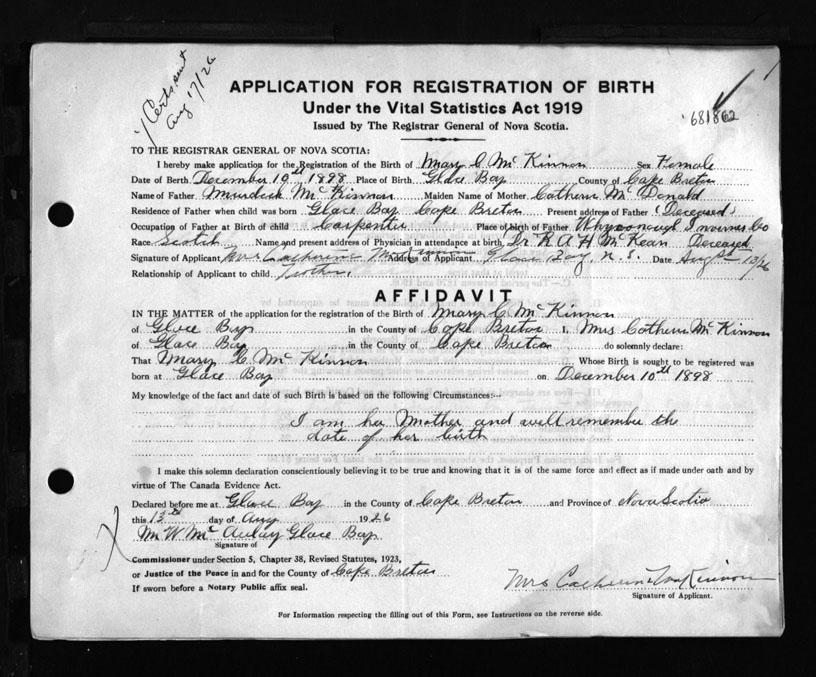 1/ Certs sent
Aug 17/26
681862
APPLICATION FOR REGISTRATION OF BIRTH
Under the Vital Statistics Act 1919
Issued by The Registrar General of Nova Scotia.
TO THE REGISTRAR GENERAL OF NOVA SCOTIA:
I hereby make application for the Registration of the Birth of Mary C McKinnon Sex Female
Date of Birth December 10th 1898 Place of Birth Glace Bay County of Cape Breton
Name of Father Murdock McKinnon Maiden Name of Mother Cathern McDonald
Residence of Father when child was born Glace Bay Cape Breton Present address of Father (Deceased)
Occupation of Father at Birth of child Carpenter Place of birth of Father Inverness Co
Race Scotch Name and present address of Physician in attendance at birth, Dr R A H McKean Deceased
Signature of Applicant Mrs Catherine McKinnon Address of Applicant Glace Bay, N.S. Date Augst 13/26
Relationship of Applicant to child Mother.
AFFIDAVIT
IN THE MATTER of the application for the registration of the Birth of Mary C McKinnon
of Glace Bay in the County of Cape Breton I, Mrs Cathern McKinnon
of Glace Bay in the County of Cape Breton do solemnly declare:
That Mary C McKinnon Whose Birth is sought to be registered was
born at Glace Bay on December 10th 1898
My knowledge of the fact and date of such Birth is based on the following Circumstances:--
I am her Mother and well remember the
date of her birth
I make this solemn declaration conscientiously believing it to be true and knowing that it is of the same force and effect as if made under oath and by
virtue of The Canada Evidence Act.
Declared before me at Glace Bay in the County of Cape Breton and Province of Nova Scotia
this 13th day of Aug 1926
M W McAulay Glace Bay
Signature of
Commissioner under Section 5, Chapter 38, Revised Statutes, 1923,
or Justice of the Peace in and for the County of Cape Breton
If sworn before a Notary Public affix seal.
Mrs Catherine McKinnon
Signature of Applicant.
For Information respecting the filling out of this Form, see Instructions on the reverse side.